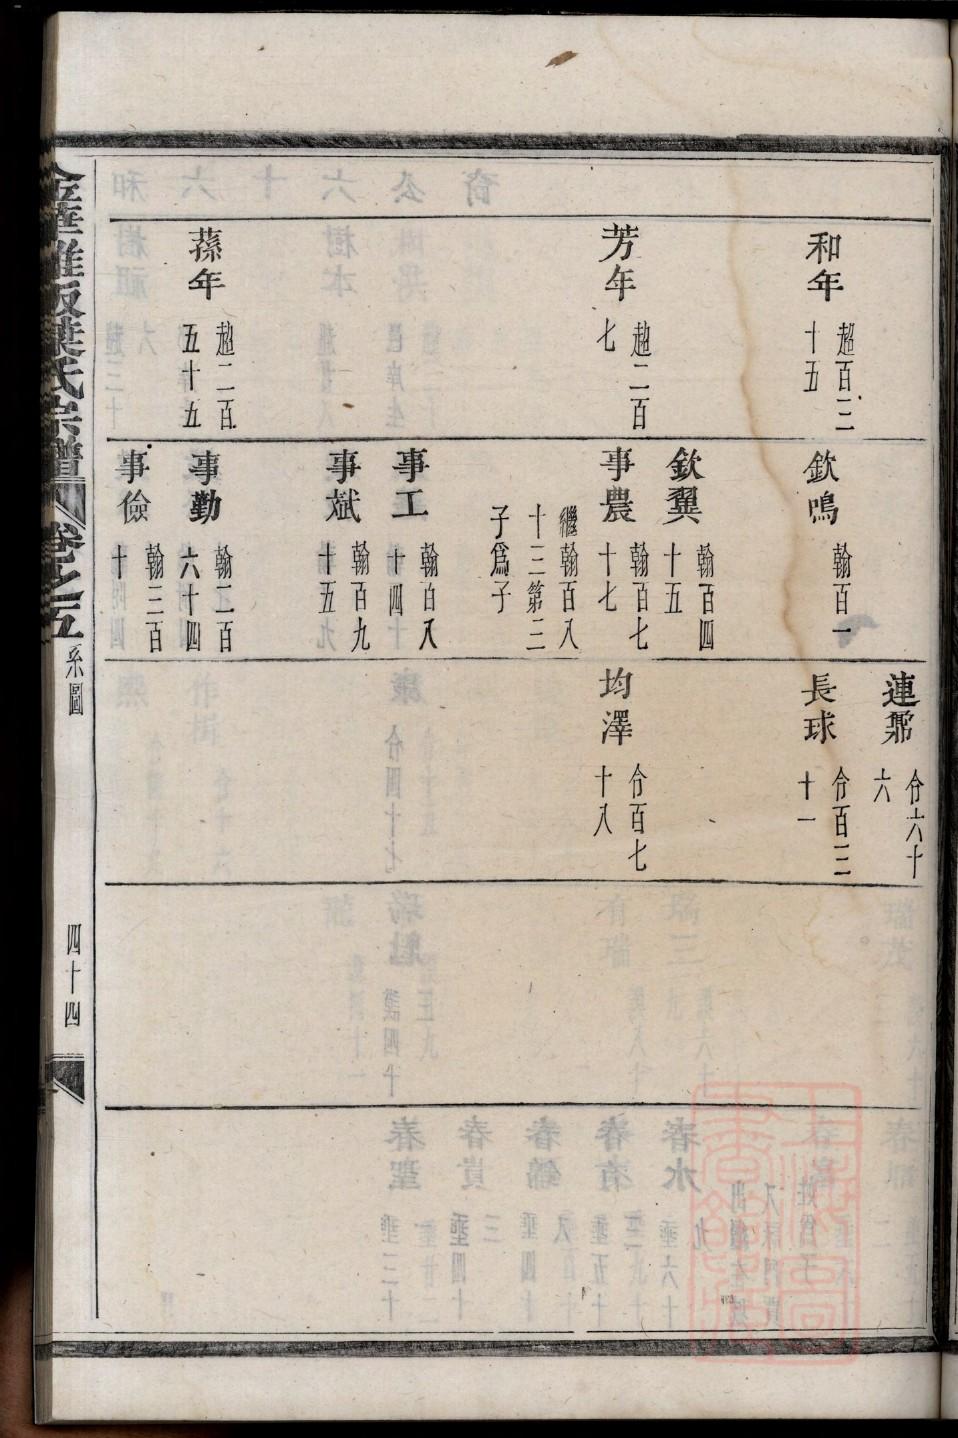 和年
超百三
十五
芳年
超二百
七
蓀年
超二百
五十五
欽鳴
翰百一
欽翼
翰百四
十五
事農
翰百七
十七
繼翰百八
十三第三
子爲子
事工
翰百八
十四
事斌
翰百九
十五
事勤
翰二百
六十四
事儉
翰三百
十
蓮鼐
份六十
六
長球
份百三
十一
均澤
份百七
十八
葉氏宗譜
卷之五
系圖
四十四